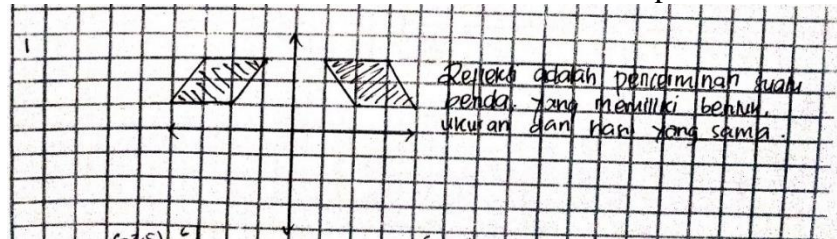 1
Refleksi adalah pencerminan suatu
benda yang memiliki bentuk,
ukuran dan hasil yang sama.